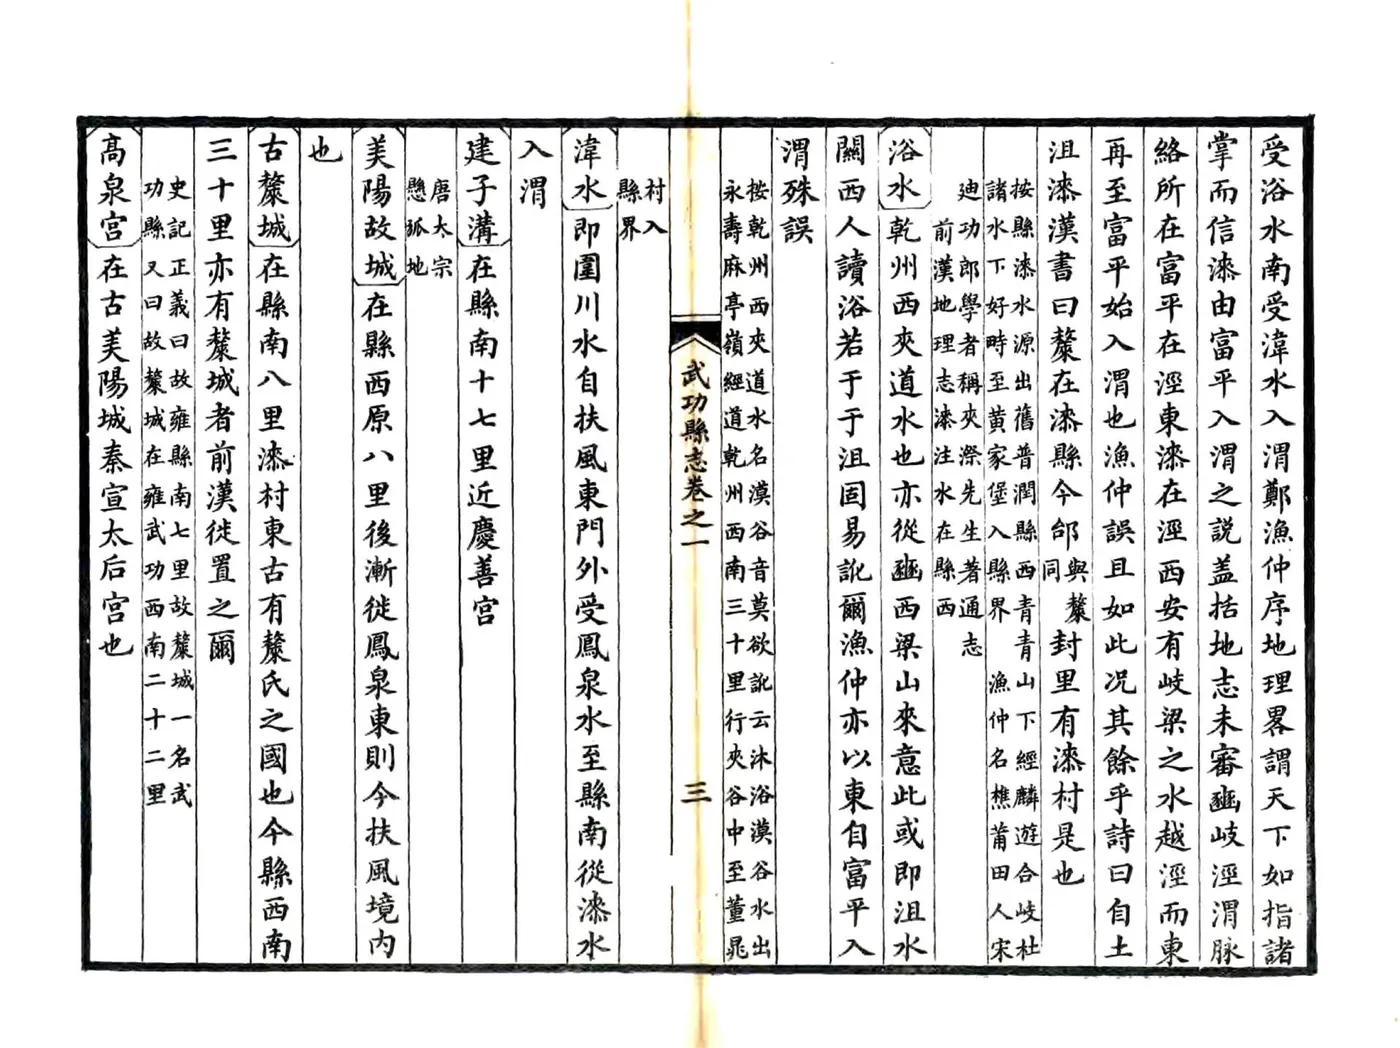 受浴水南受湋水入渭鄭漁仲序地理畧謂天下如指諸
掌而信漆由富平入渭之説盖括地志未審豳岐涇渭脉
絡所在富平在涇東漆在涇西安有岐梁之水越涇而東
再至富平始入渭也漁仲誤且如此况其餘乎詩曰自土
沮漆漢書曰斄在漆縣今邰與斄同封里有漆村是也
按縣漆水源出舊普潤縣西青青山下經麟遊合岐杜
諸水下好時至黄家堡入縣界 漁仲名樵莆田人宋
迪功郎學者稱夾漈先生著通志
前漢地理志漆注水在縣西
浴水乾州西夾道水也亦從豳西梁山來意此或即沮水
關西人讀浴若于于沮固易訛爾漁仲亦以東自富平入
渭殊誤
按乾州西夾道水名漠谷音莫欲訛云沐浴漠谷水出
永壽麻亭嶺經道乾州西南三十里行夾谷中至董晁
武功縣志卷之一
三
村入
縣界
湋水即圍川水自扶風東門外受鳳泉水至縣南從漆水
入渭
建子溝在縣南十七里近慶善宫
唐太宗
懸弧地
美陽故城在縣西原八里後漸徙鳳泉東則今扶風境内
也
古斄城在縣南八里漆村東古有斄氏之國也今縣西南
三十里亦有斄城者前漢徙置之爾
史記正義曰故雍縣南七里故斄城一名武
功縣又曰故斄城在雍武功西南二十二里
高泉宫在古美陽城秦宣太后宫也